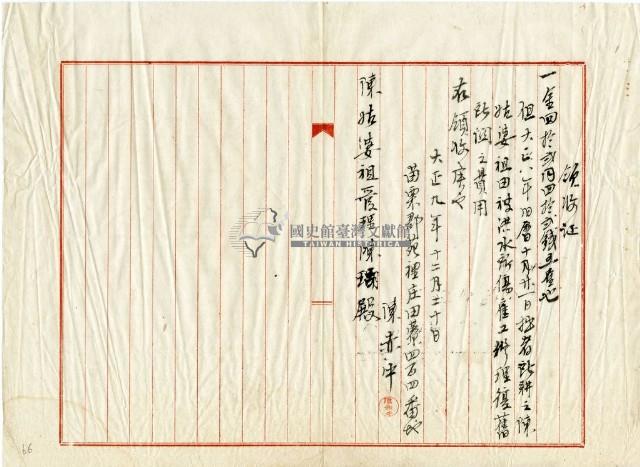 領收証
一金四拾弐円四拾弐錢五厘也
但大正八年旧曆十月廿一日拙者所耕之陳
姑婆祖田被洪水所傷雇工修理復舊
所調之費用
右領收候也
大正九年十二月三十日
苗栗郡苑裡庄田藔四百四番地
陳赤牛
陳姑婆祖管理陳瑚殿
國史館臺灣文獻館
TAIWAN HISTORICA
66